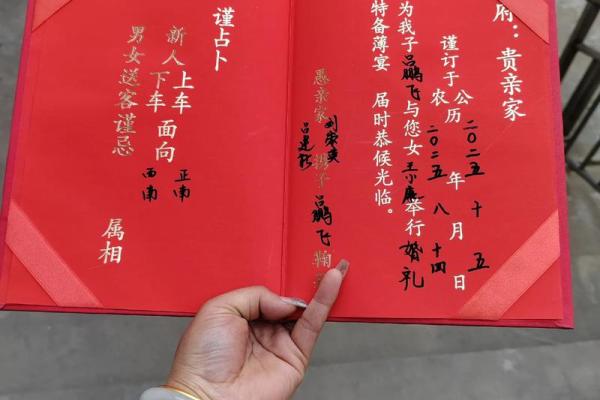 府：贵亲家
谨订于
公历 二〇二五 年 十 月 五 日
农历 二〇二五 八 十四
为我子吕鹏飞与您女王小举行婚礼
特备薄宴 届时恭候光临。
愚亲家 刘荣 吕建 携子吕鹏飞鞠
谨占卜
新人上车面向正南
下车西南
男女送客谨忌
属相